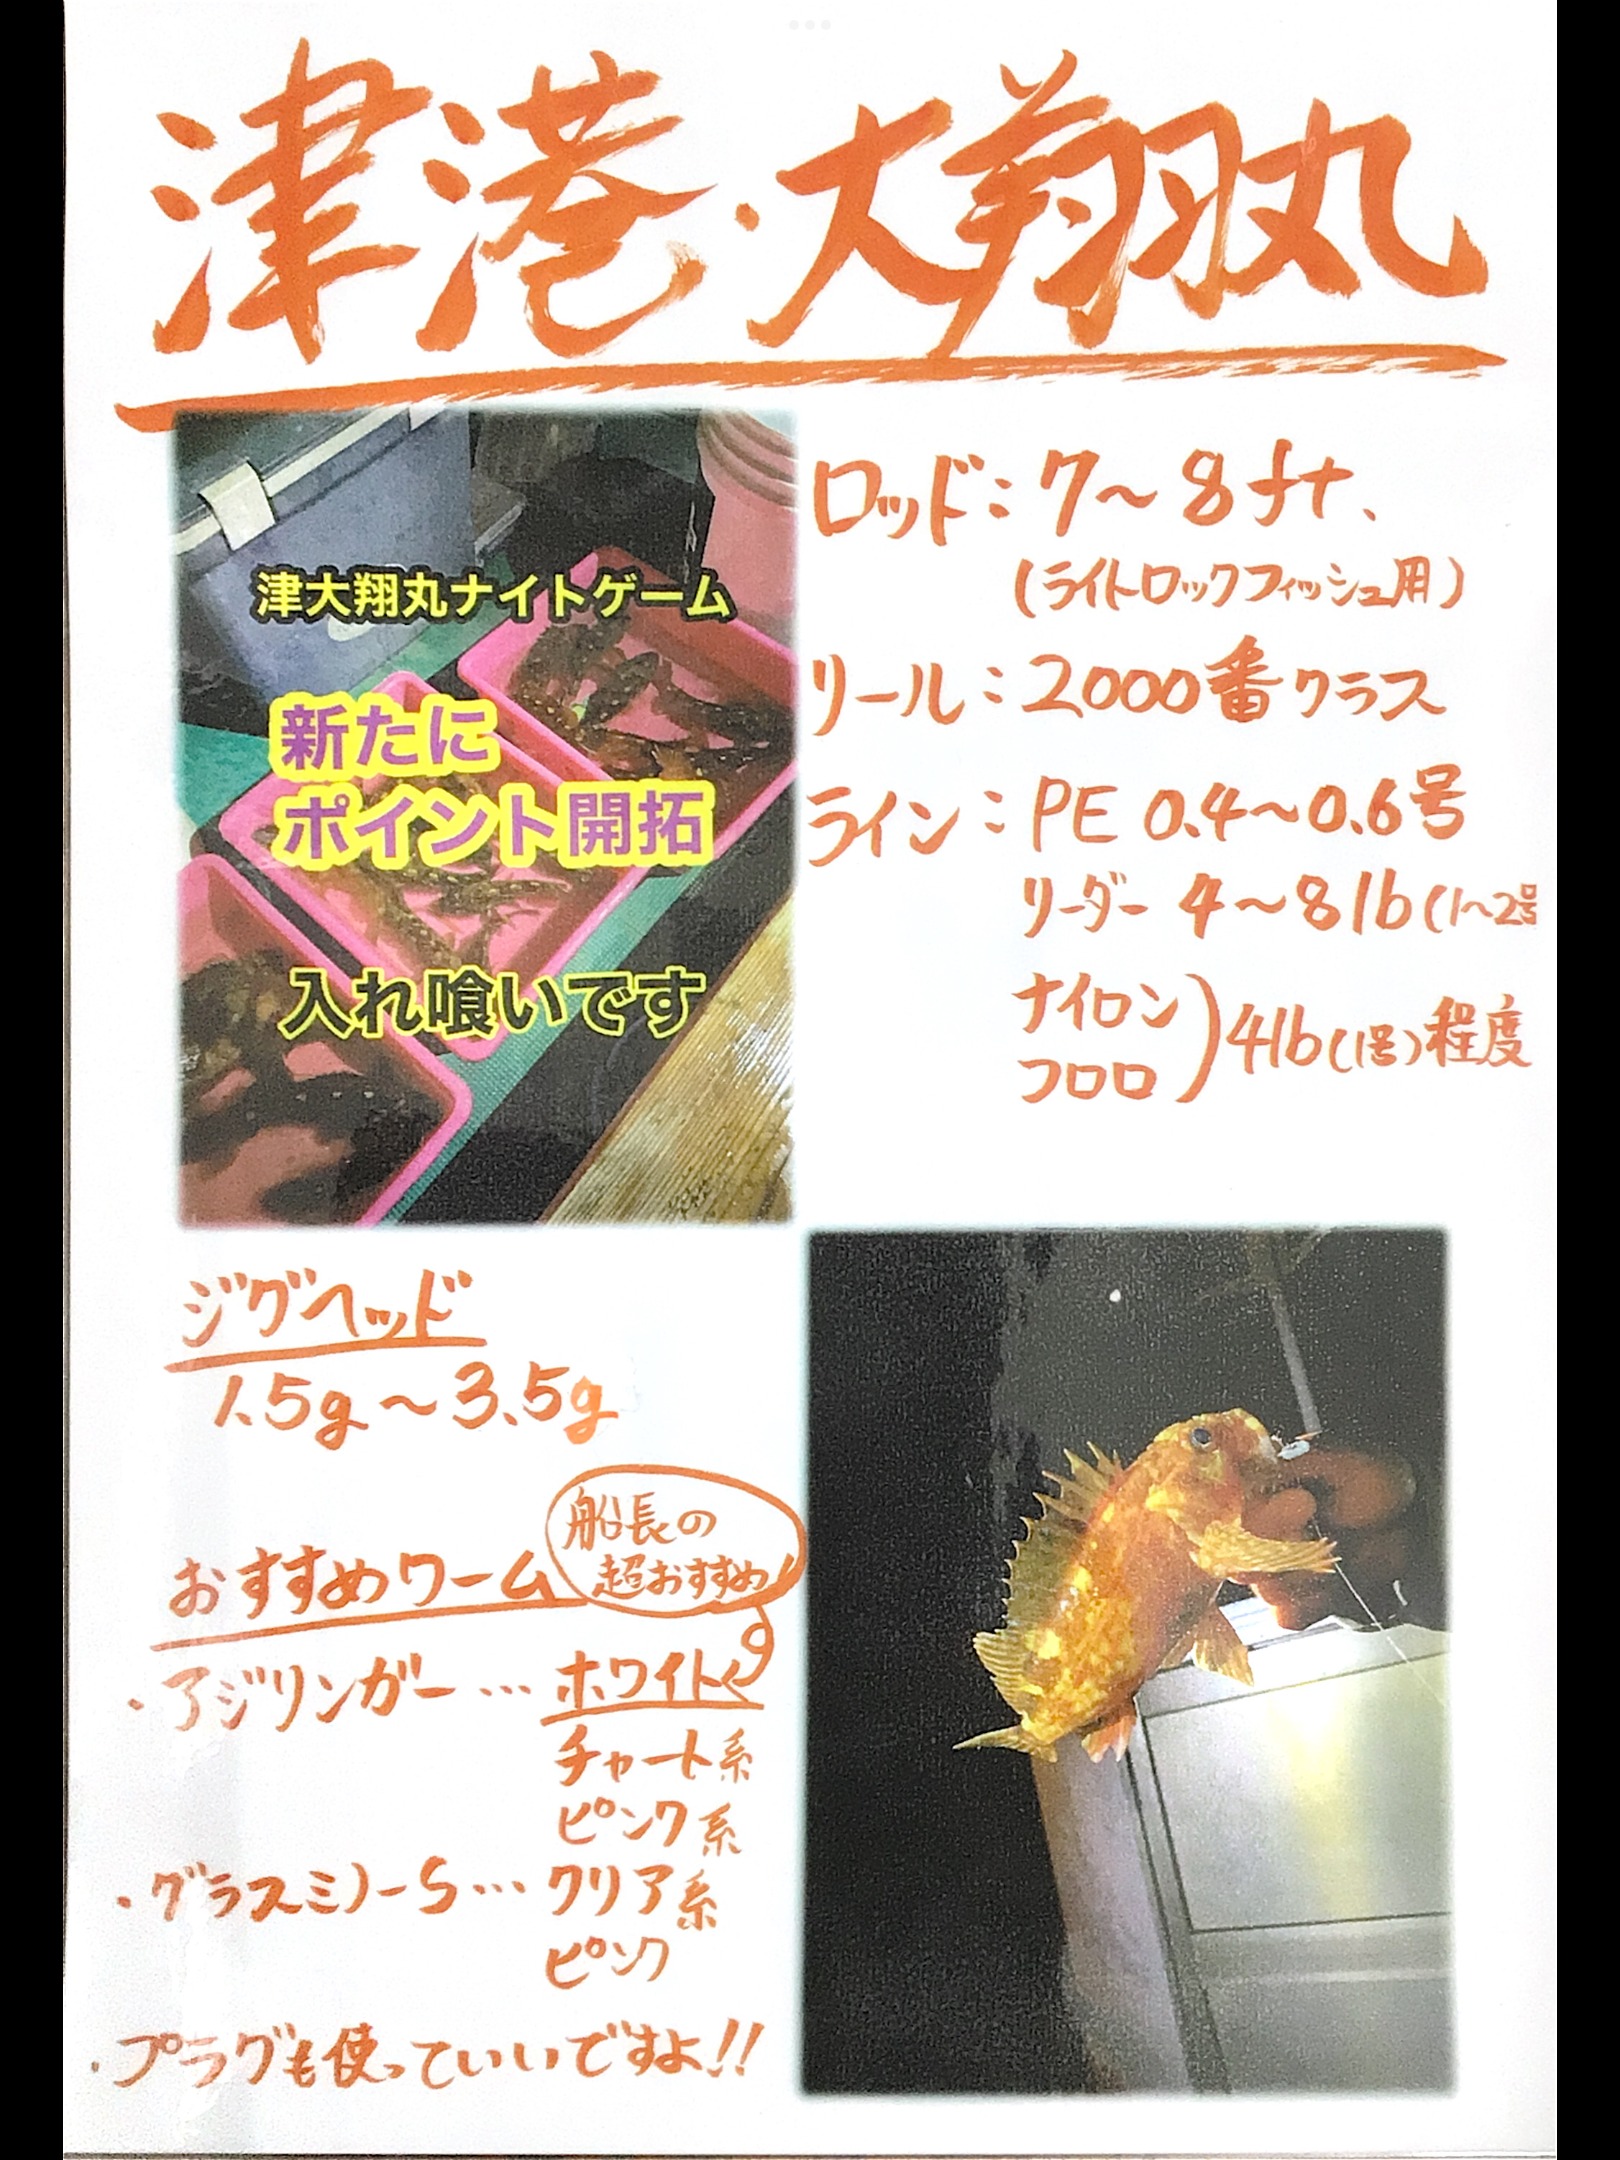 津港・大翔丸
津大翔丸ナイトゲーム
新たに
ポイント開拓
入れ喰いです
ロッド：7～8ft、
(ライトロックフィッシュ用)
リール：2000番クラス
ライン：PE 0.4～0.6号
リーダー 4～8lb(1～2号
ナイロン
フロロ
)4lb(1号)程度
ジグヘッド
1.5g～3.5g
おすすめワーム
船長の
超おすすめ
・アジリンガー…ホワイト
チャート系
ピンク系
・グラスミノーS…クリア系
ピンク
・プラグも使っていいですよ!!